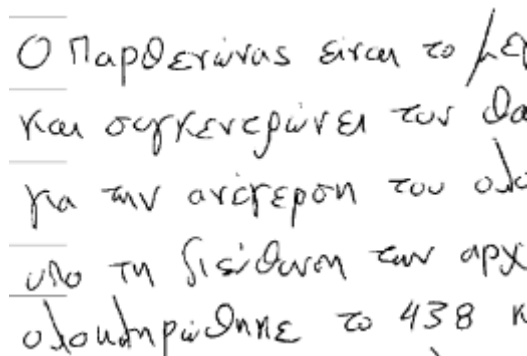 Ο Παρθενώνας είναι το με
και συγκεντρώνει τον θα
για την ανέγερση του ολο
υπο τη διεύθυνση των αρχ
ολοκληρώθηκε το 438 κ